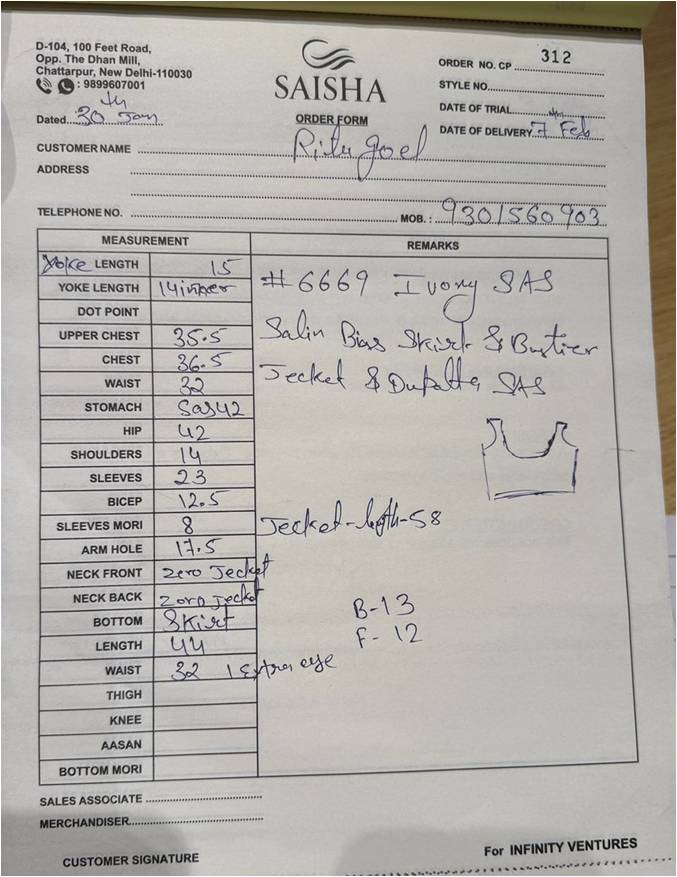 D-104, 100 Feet Road,
Opp. The Dhan Mill,
Chattarpur, New Delhi-110030
: 9899607001
SAISHA
ORDER FORM
ORDER NO. CP 312
STYLE NO.
DATE OF TRIAL
DATE OF DELIVERY 7 Feb
Dated 30 Jan
CUSTOMER NAME Ritu Goel
ADDRESS
TELEPHONE NO. MOB. : 9301560903
MEASUREMENT
Yoke LENGTH 15
YOKE LENGTH 14 inner
DOT POINT
UPPER CHEST 35.5
CHEST 36.5
WAIST 32
STOMACH Sas42
HIP 42
SHOULDERS 14
SLEEVES 23
BICEP 12.5
SLEEVES MORI 8
ARM HOLE 17.5
NECK FRONT zero Jecket
NECK BACK zero Jecket
BOTTOM Skirt
LENGTH 44
WAIST 32 1 Extra eye
THIGH
KNEE
AASAN
BOTTOM MORI
REMARKS
#6669 Ivory SAS
Satin Bias Skirt & Bustier
Jecket & Dupatta SAS
Jecket-length-58
B-13
F-12
SALES ASSOCIATE
MERCHANDISER
CUSTOMER SIGNATURE
For INFINITY VENTURES